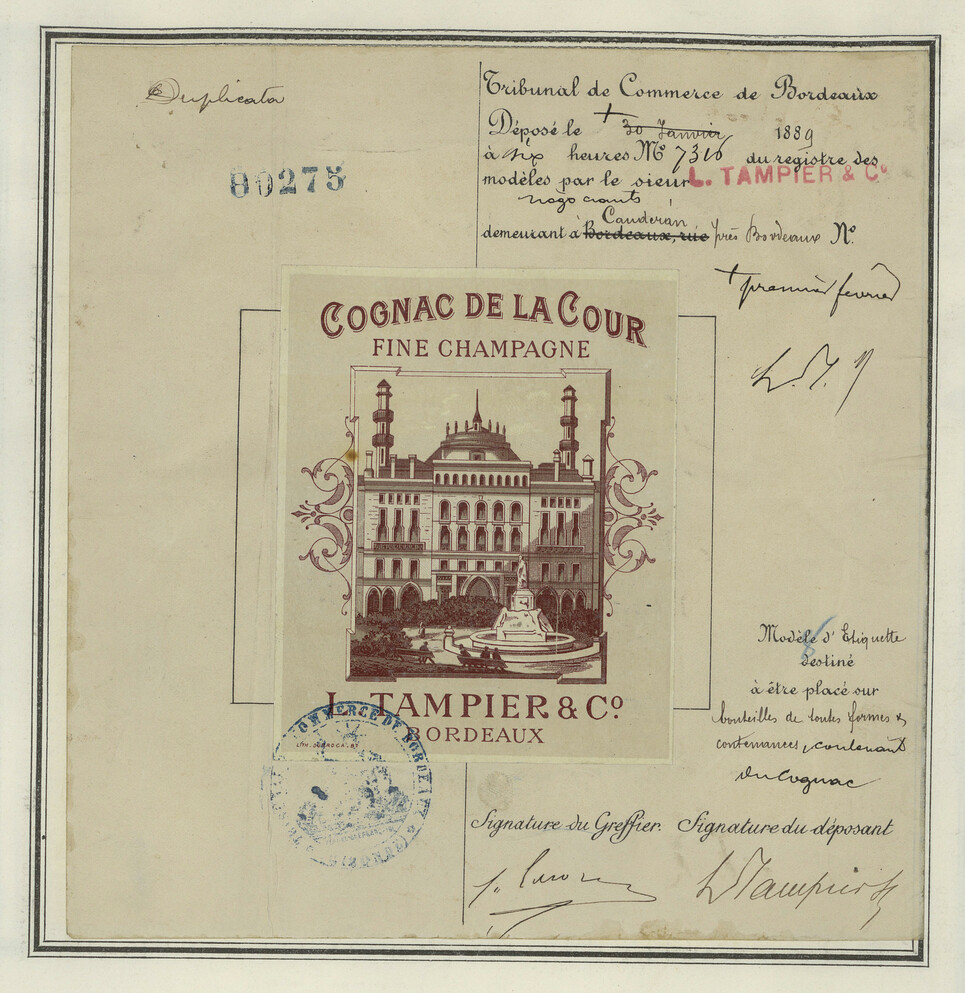 Duplicata
80275
Tribunal de Commerce de Bordeaux
Déposé le + 30 Janvier 1889
à six heures M Nº 7316 du registre des
modèles par le sieur L. TAMPIER & Cº
négociants
Cauderan
demeurant à Bordeaux, rue près Bordeaux Nº
+ premier février
L. T.
COGNAC DE LA COUR
FINE CHAMPAGNE
L. TAMPIER & Cº
BORDEAUX
Modèle d'Etiquette
destiné
à être placé sur
bouteilles de toutes formes &
contenances, contenant
du Cognac
COMMERCE DE BORDEAUX
Signature du Greffier. Signature du déposant
L Tampier